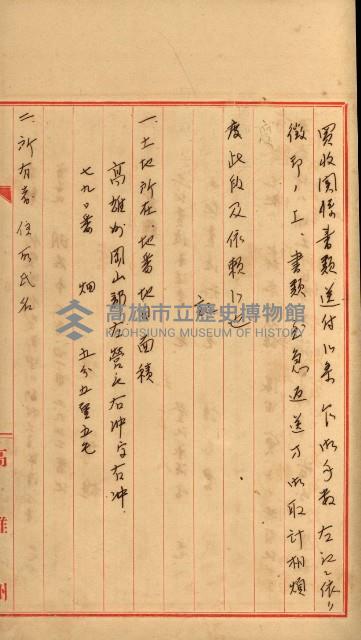 買收関係書類送付候条乍御手数左記ニ依リ
徴印ノ上、書類至急返送方御取計相煩
度此段及依頼候也
記
一、土地所在、地番、地目、面積
高雄州岡山郡左営庄右冲字右冲
七九〇番 畑 五分五厘五毛
二、所有者住所氏名
高雄州
高雄市立歷史博物館
KAOHSIUNG MUSEUM OF HISTORY